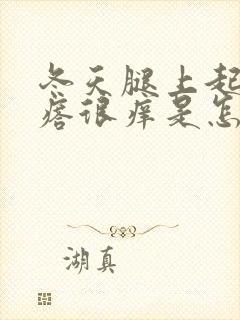 冬天腿上起
痞很痒是怎
湖真